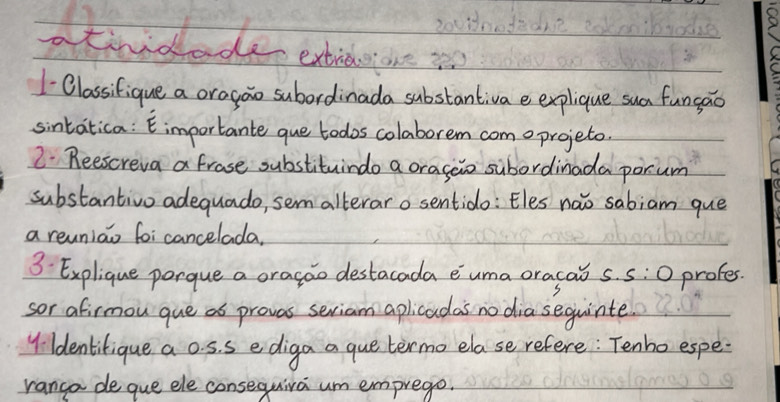 atividade extra
1- Classifique a oração subordinada substantiva e explique sua função
sintática: É importante que todos colaborem com o projeto.
2- Reescreva a frase substituindo a oração subordinada por um
substantivo adequado, sem alterar o sentido: Eles não sabiam que
a reunião foi cancelada.
3- Explique porque a oração destacada é uma oração s.s: O profes-
sor afirmou que as provas seriam aplicadas no dia seguinte.
4- Identifique a o.s.s e diga a que termo ela se refere: Tenho espe-
rança de que ele conseguirá um emprego.